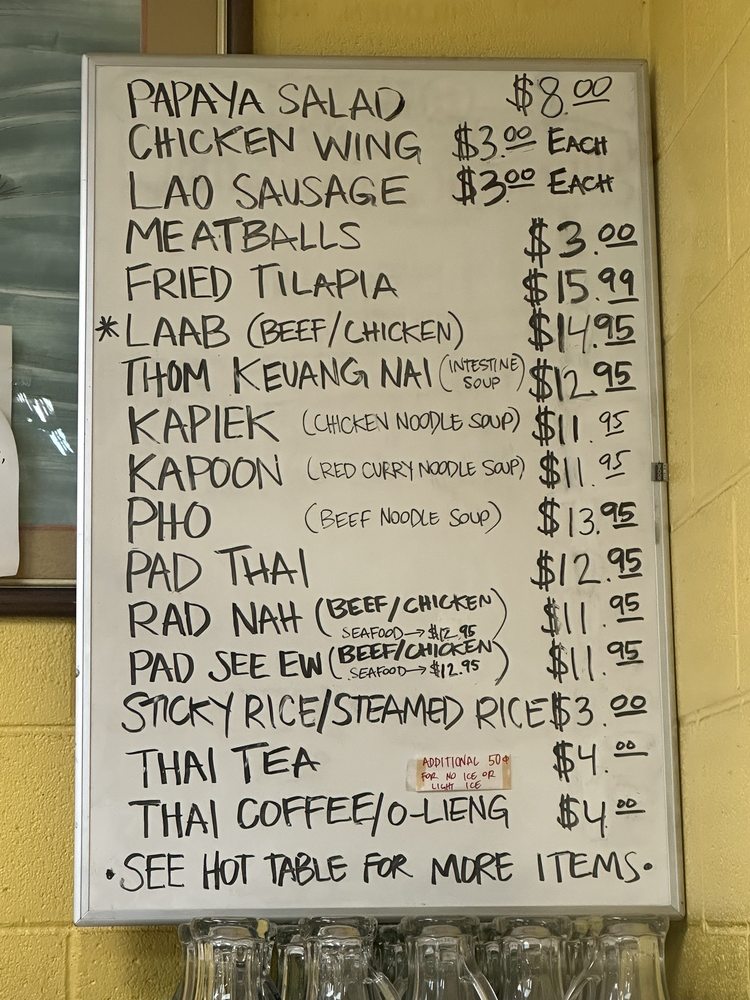 PAPAYA SALAD $8.00
CHICKEN WING $3.00 EACH
LAO SAUSAGE $3.00 EACH
MEATBALLS $3.00
FRIED TILAPIA $15.99
*LAAB (BEEF/CHICKEN) $14.95
THOM KEUANG NAI (INTESTINE SOUP) $12.95
KAPIEK (CHICKEN NOODLE SOUP) $11.95
KAPOON (RED CURRY NOODLE SOUP) $11.95
PHO (BEEF NOODLE SOUP) $13.95
PAD THAI $12.95
RAD NAH (BEEF/CHICKEN) $11.95
SEAFOOD→$12.95
PAD SEE EW (BEEF/CHICKEN) $11.95
SEAFOOD→$12.95
STICKY RICE/STEAMED RICE $3.00
THAI TEA $4.00
ADDITIONAL 50¢
FOR NO ICE OR
LIGHT ICE
THAI COFFEE/O-LIENG $4.00
•SEE HOT TABLE FOR MORE ITEMS•